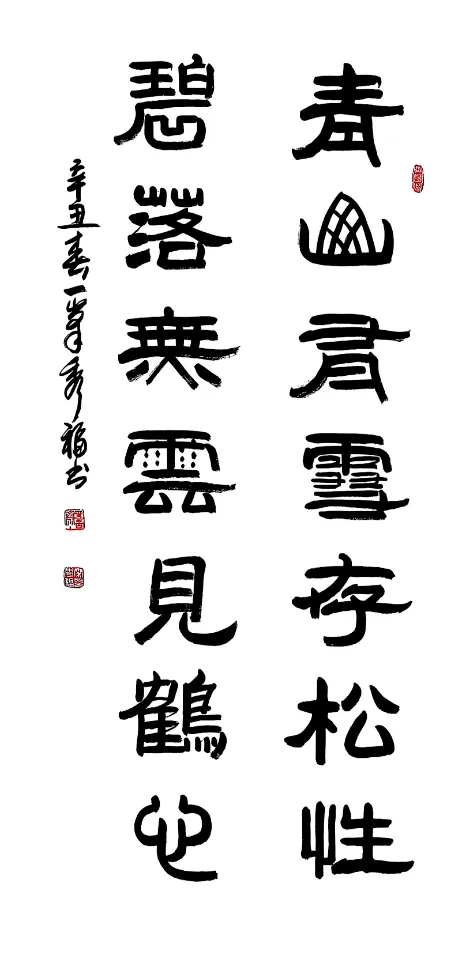 青山有雪存松性
碧落無雲見鶴心
辛丑春一峯秀福书